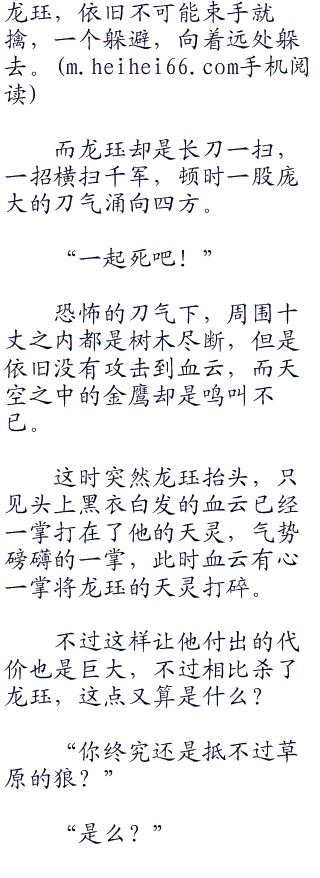 龙珏，依旧不可能束手就
擒，一个躲避，向着远处躲
去。(m.heihei66.com手机阅
读)
而龙珏却是长刀一扫，
一招横扫千军，顿时一股庞
大的刀气涌向四方。
“一起死吧！”
恐怖的刀气下，周围十
丈之内都是树木尽断，但是
依旧没有攻击到血云，而天
空之中的金鹰却是鸣叫不
已。
这时突然龙珏抬头，只
见头上黑衣白发的血云已经
一掌打在了他的天灵，气势
磅礴的一掌，此时血云有心
一掌将龙珏的天灵打碎。
不过这样让他付出的代
价也是巨大，不过相比杀了
龙珏，这点又算是什么？
“你终究还是抵不过草
原的狼？”
“是么？”